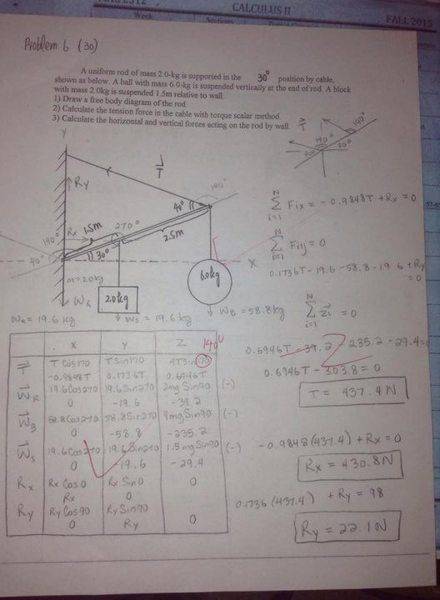 CALCULUS II
FALL 2015
Week
Problem 6 (30)
A uniform rod of mass 2.0-kg is supported in the 30° position by cable,
shown as below. A ball with mass 6.0-kg is suspended vertically at the end of rod. A block
with mass 2.0kg is suspended 1.5m relative to wall.
1) Draw a free body diagram of the rod
2) Calculate the tension force in the cable with torque scalar method.
3) Calculate the horizontal and vertical forces acting on the rod by wall.
Y
T
T
Ry
Rx
1.5m
270°
40°
2.5m
30°
X
m=2.0kg
WR
2.0kg
6.0kg
WR = 19.6 kg
WS = 19.6 kg
WB = 58.8kg
N
Σ Fix = -0.9848T + Rx = 0
i=1
Σ Fij = 0
0.1736T - 19.6 - 58.8 - 19.6 + Ry = 0
N
Σ τi = 0
i=1
0.6946T - 39.2 - 235.2 - 29.4 = 0
0.6946T - 303.8 = 0
T = 437.4 N
-0.9848(437.4) + Rx = 0
Rx = 430.8N
0.1736(437.4) + Ry = 98
Ry = 22.1N
X Y Z
140°
T T Cos170 T Sin170
-0.9848T 0.1736T 0.6946T
WR 19.6Cos270 19.6Sin270 2mg Sin90 (-)
0 -19.6 -39.2
WB 58.8Cos270 58.8Sin270 4mg Sin90 (-)
0 -58.8 -235.2
WS 19.6Cos270 19.6Sin270 1.5mg Sin90 (-)
0 -19.6 -29.4
Rx Rx Cos0 Rx Sin0 0
Rx 0
Ry Ry Cos90 Ry Sin90 0
0 Ry